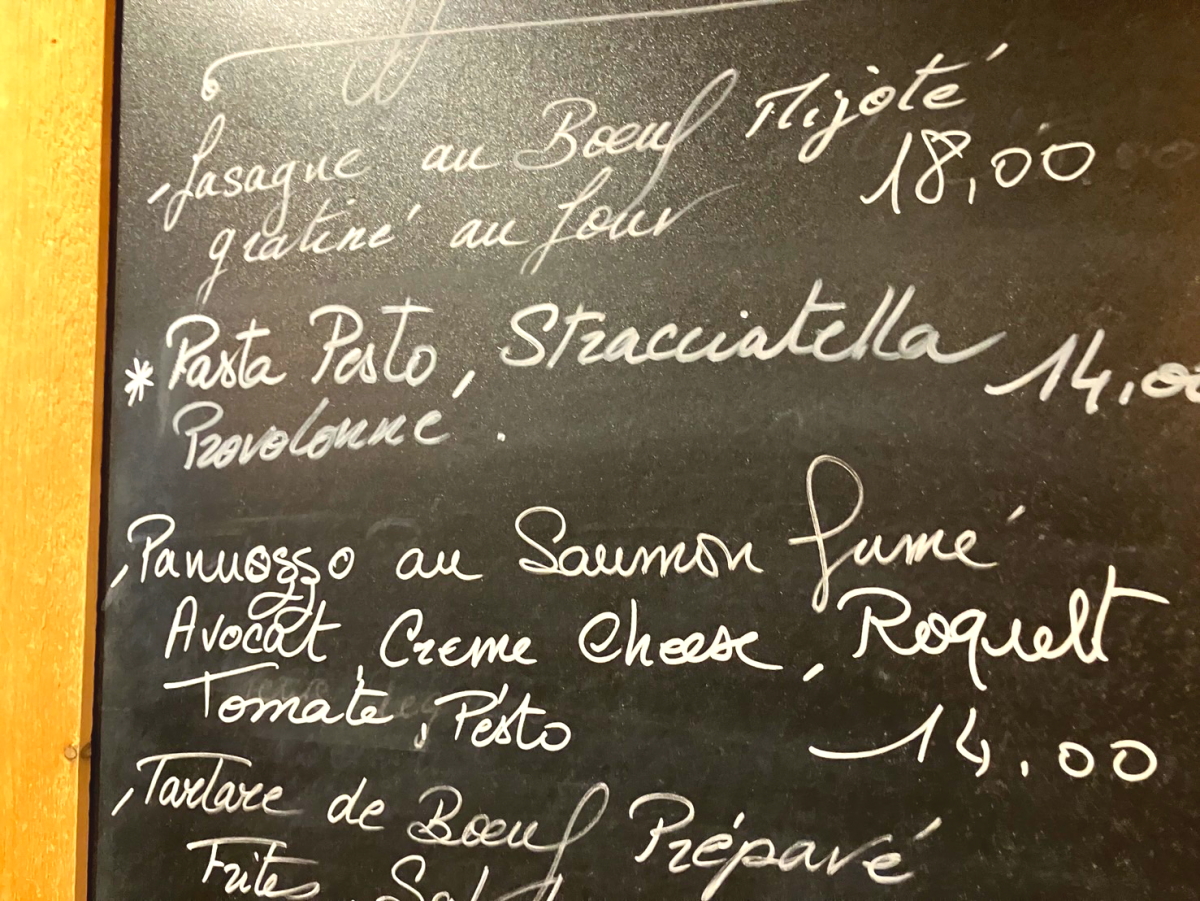 Lasagne au Bœuf Mijoté
gratiné au four 18,00
* Pasta Pesto, Stracciatella 14,00
Provolonne.
Panuozzo au Saumon fumé
Avocat, Creme Cheese, Roquett
Tomate, Pésto 14.00
Tartare de Bœuf Préparé
Frites